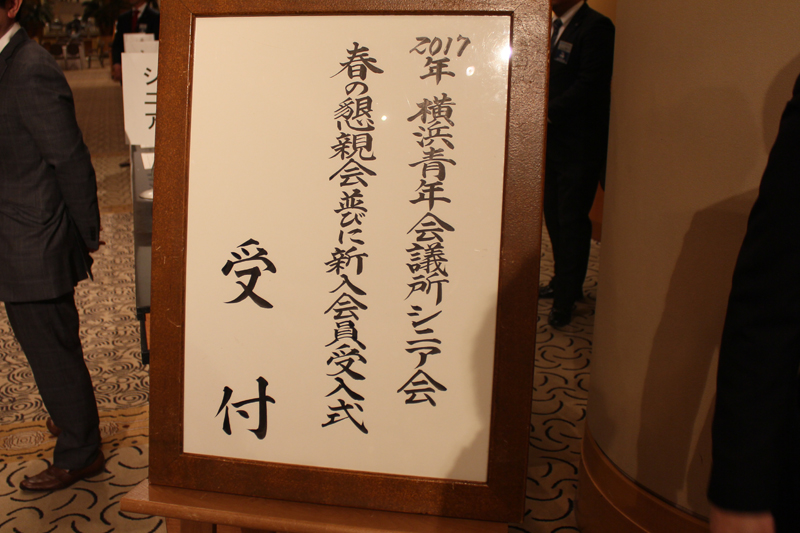 2017年 横浜青年会議所シニア会
春の懇親会並びに新入会員受入式
受付
シニア